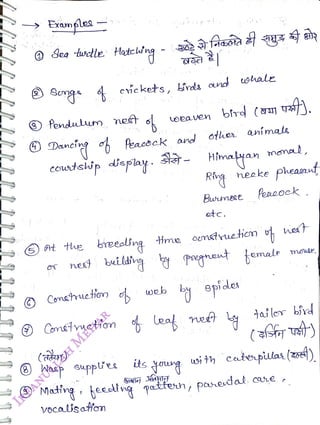 → Examples —
① Sea turtle Hatching - अण्डे से निकलते ही समुद्र की ओर
बढ़ते है|
② Songs of crickets, birds and whale
③ Pendulum nest of weaven bird (बया पक्षी).
④ Dancing of Peacock and other animals
courtship display. जैसे - Himalyan monal,
Ring necke pheasant,
Burmese Peacock.
etc.
⑤ At the breeding time construction of nest
or nest building by pregnent female mouse.
⑥ Construction of web by spider
⑦ Construction of leaf nest by tailor bird
(दर्जिन पक्षी)
(ततैया)
⑧ Wasp supplies its young with caterpillar (इल्ली).
⑨ Mating, feeding pattern, parental care,
vocalisation